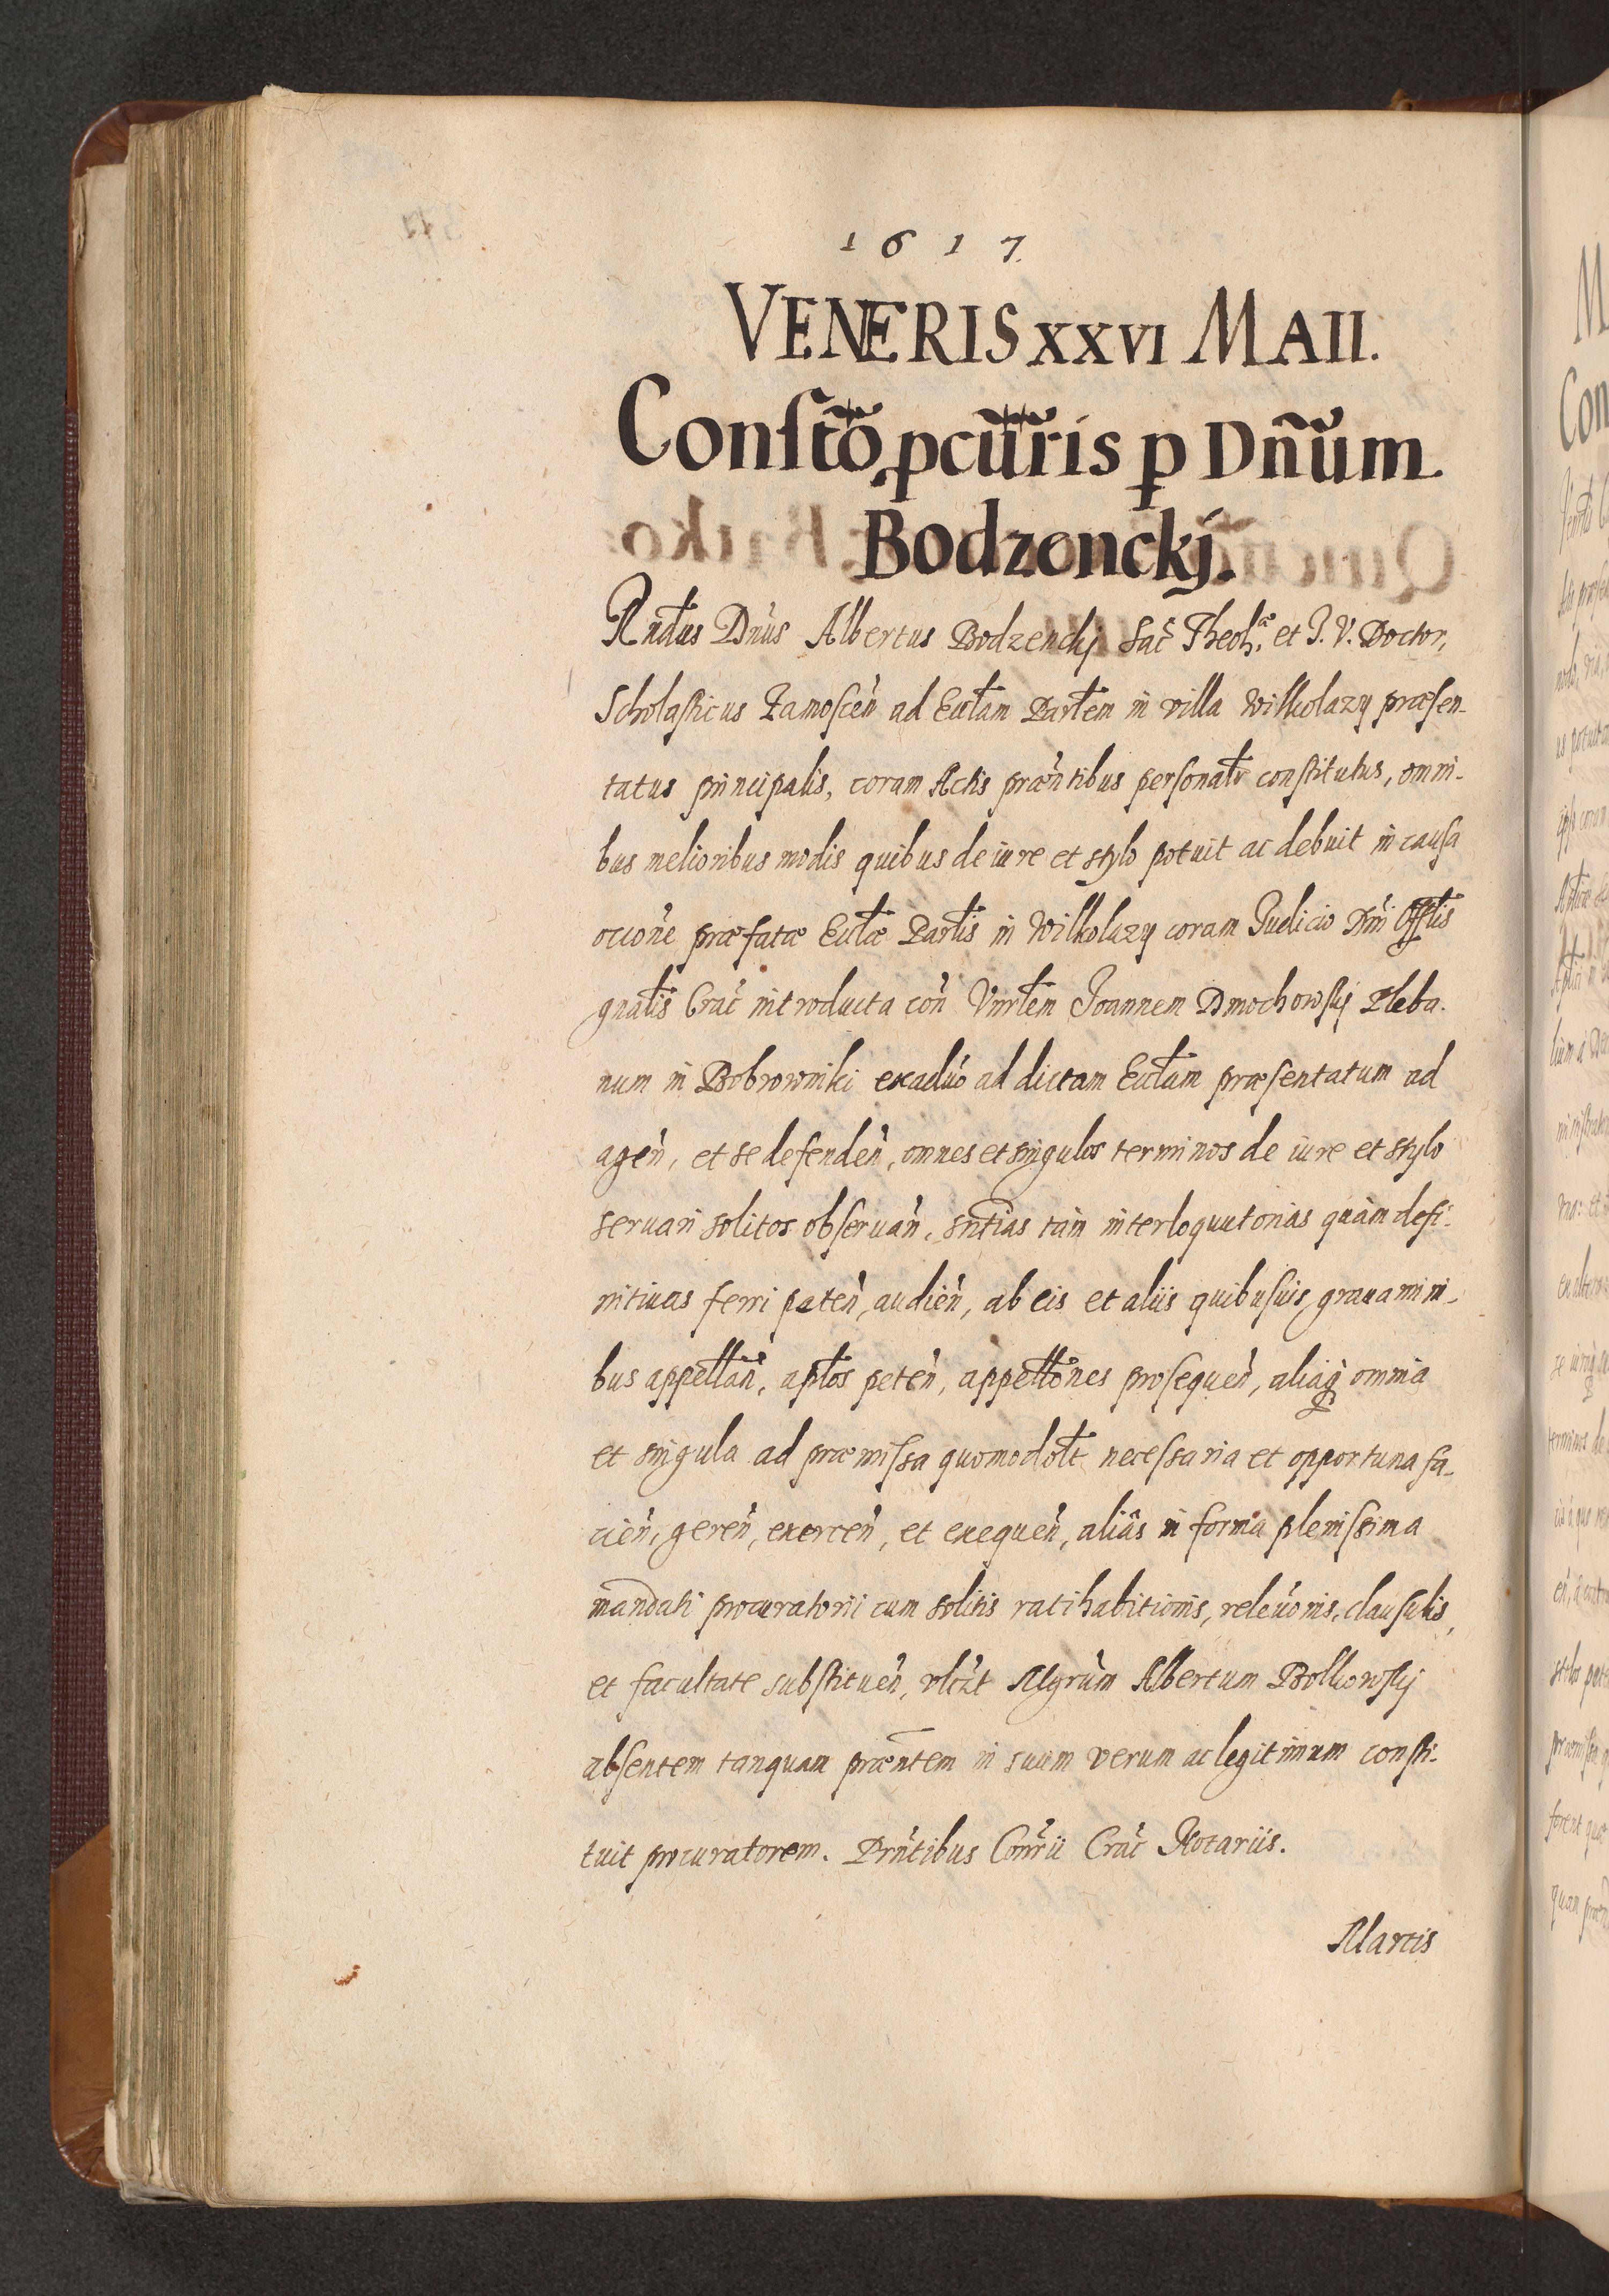 1617.
VENERIS XXVI MAII.
Conſtõ pcũris p Dñum
Bodzenckj.
Rndus Dnus Albertus Bodzenckj Sac Theolae et J. V. Doctor,
Scholaſticus Zamoſcen ad Ecclam Parlem in villa Wilkolazy præſen-
tatus principalis, coram Actis præntibus perſonalr conſtitutus, omni-
bus melioribus modis quibus de iure et stylo potuit ac debuit in cauſa
occone præfatæ Ecclæ Parlis in Wilkolazy coram Judicio Dni Offlis
gnalis Crac introducta con Vnrlem Joannem Dmochowſkj Pleba-
num in Bobrowniki exaduo ad dictam Ecclam præſentatum ad
agen, et se defenden, omnes et singulos terminos de iure et stylo
seruari solitos obſeruan, sntias tam interloquutorias quàm defi-
nitiuas ferri peten, audien, ab eis et aliis quibuſuis grauamini-
bus appellan, aplos peten, appellones proſequen, aliaq omnia
et singula ad præmiſſa quomodolt neceſſaria et opportuna fa-
cien, geren, exercen, et exequen, aliâs in forma pleniſſima
mandati procuratorii cum solitis ratihabitionis, releuonis, clauſulis,
et facultate subſtituen, vlczt Mgrum Albertum Bolkowſkj
abſentem tanquam præntem in suum verum ac legitimum conſti-
tuit procuratorem. Prntibus Conrii Crac Notariis.
Martis